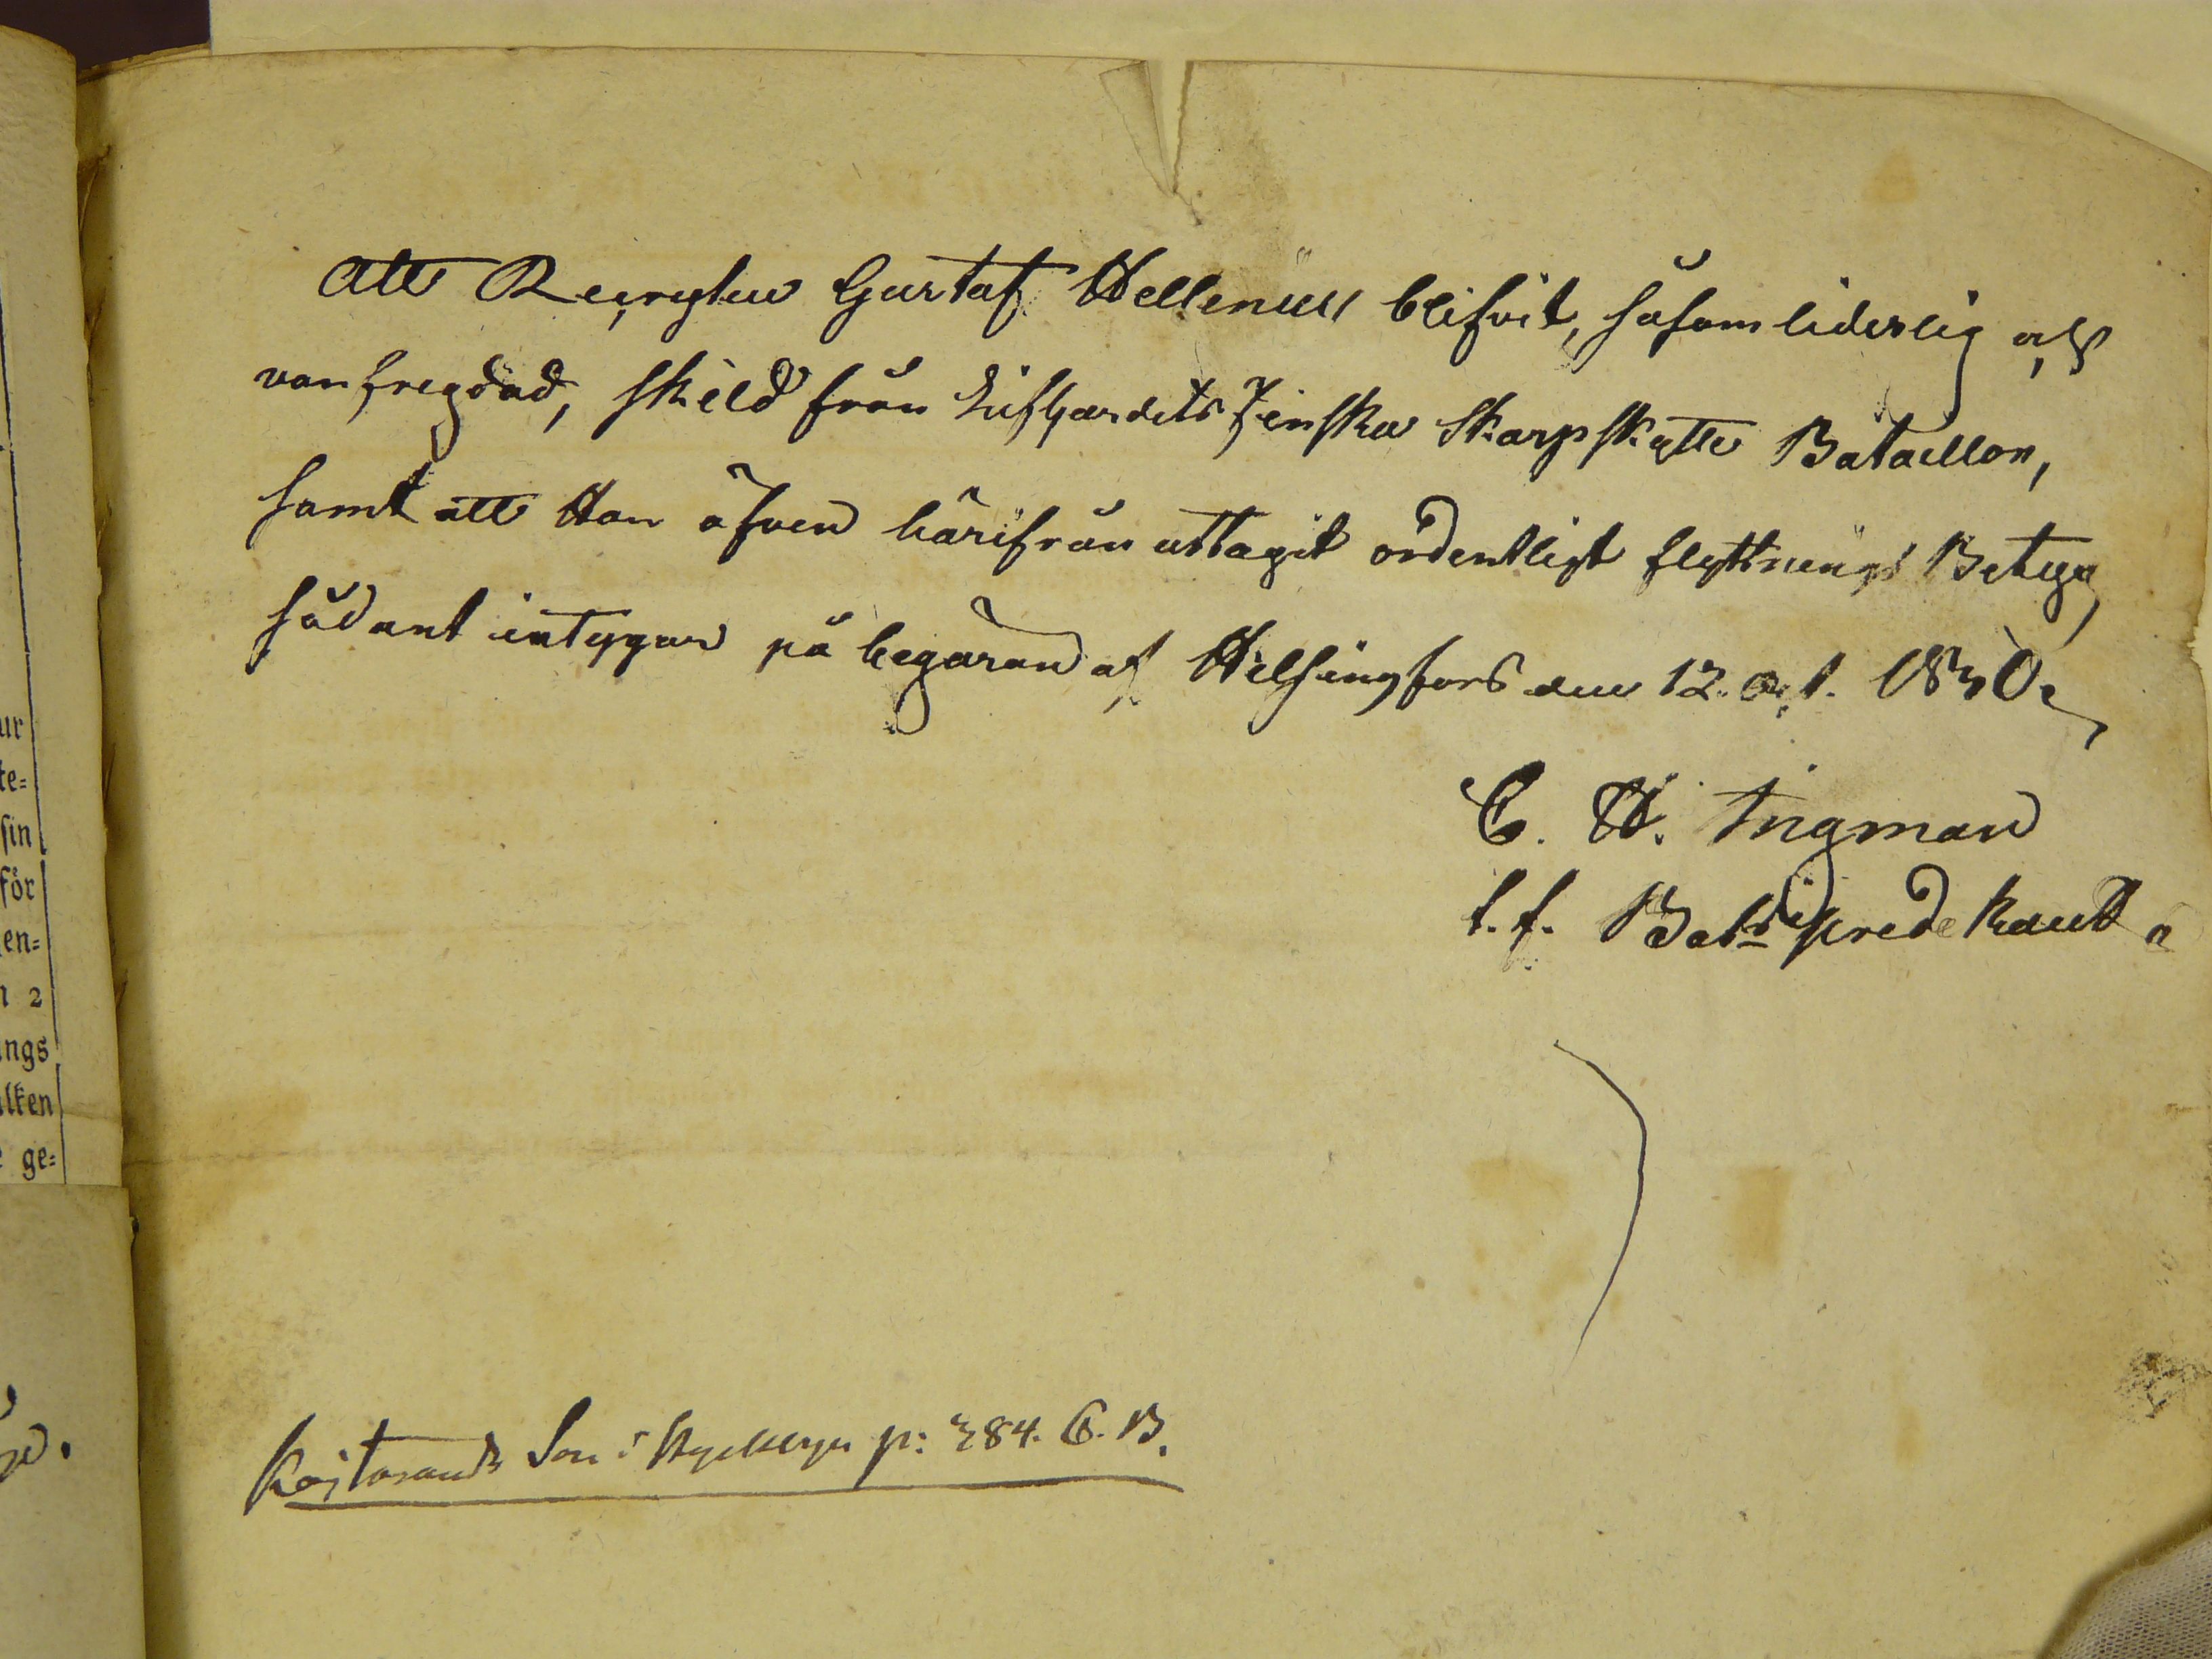 Att Recryten Gustaf Hellenius blifvit, såsom liderlig och
vanfregdad, skild från Lifgardets Finska Skarpskytte Bataillon,
samt att Han äfven härifrån uttagit ordentligt flyttnings Betyg,
sådant intygar på begäran af Helsingfors den 12. Oct. 1830.
C. H. Ingman
t. f. Bat:s predikant
Son i p: 384. C. B.
ur
te=
sin
för
en=
2
ngs
lken
ge=